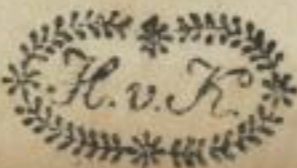 H. v. K.